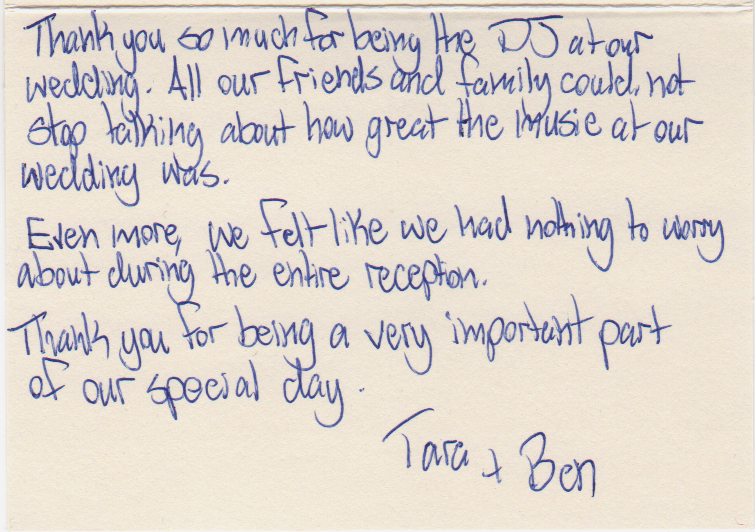 Thank you so much for being the DJ at our
wedding. All our friends and family could not
stop talking about how great the music at our
wedding was.
Even more, we felt like we had nothing to worry
about during the entire reception.
Thank you for being a very important part
of our special day.
Tara + Ben